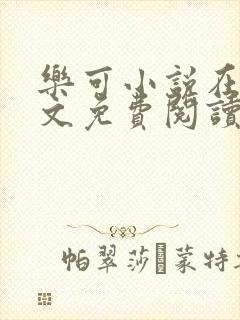 樂可小說在
文免費閱讀
帕翠莎 蒙特